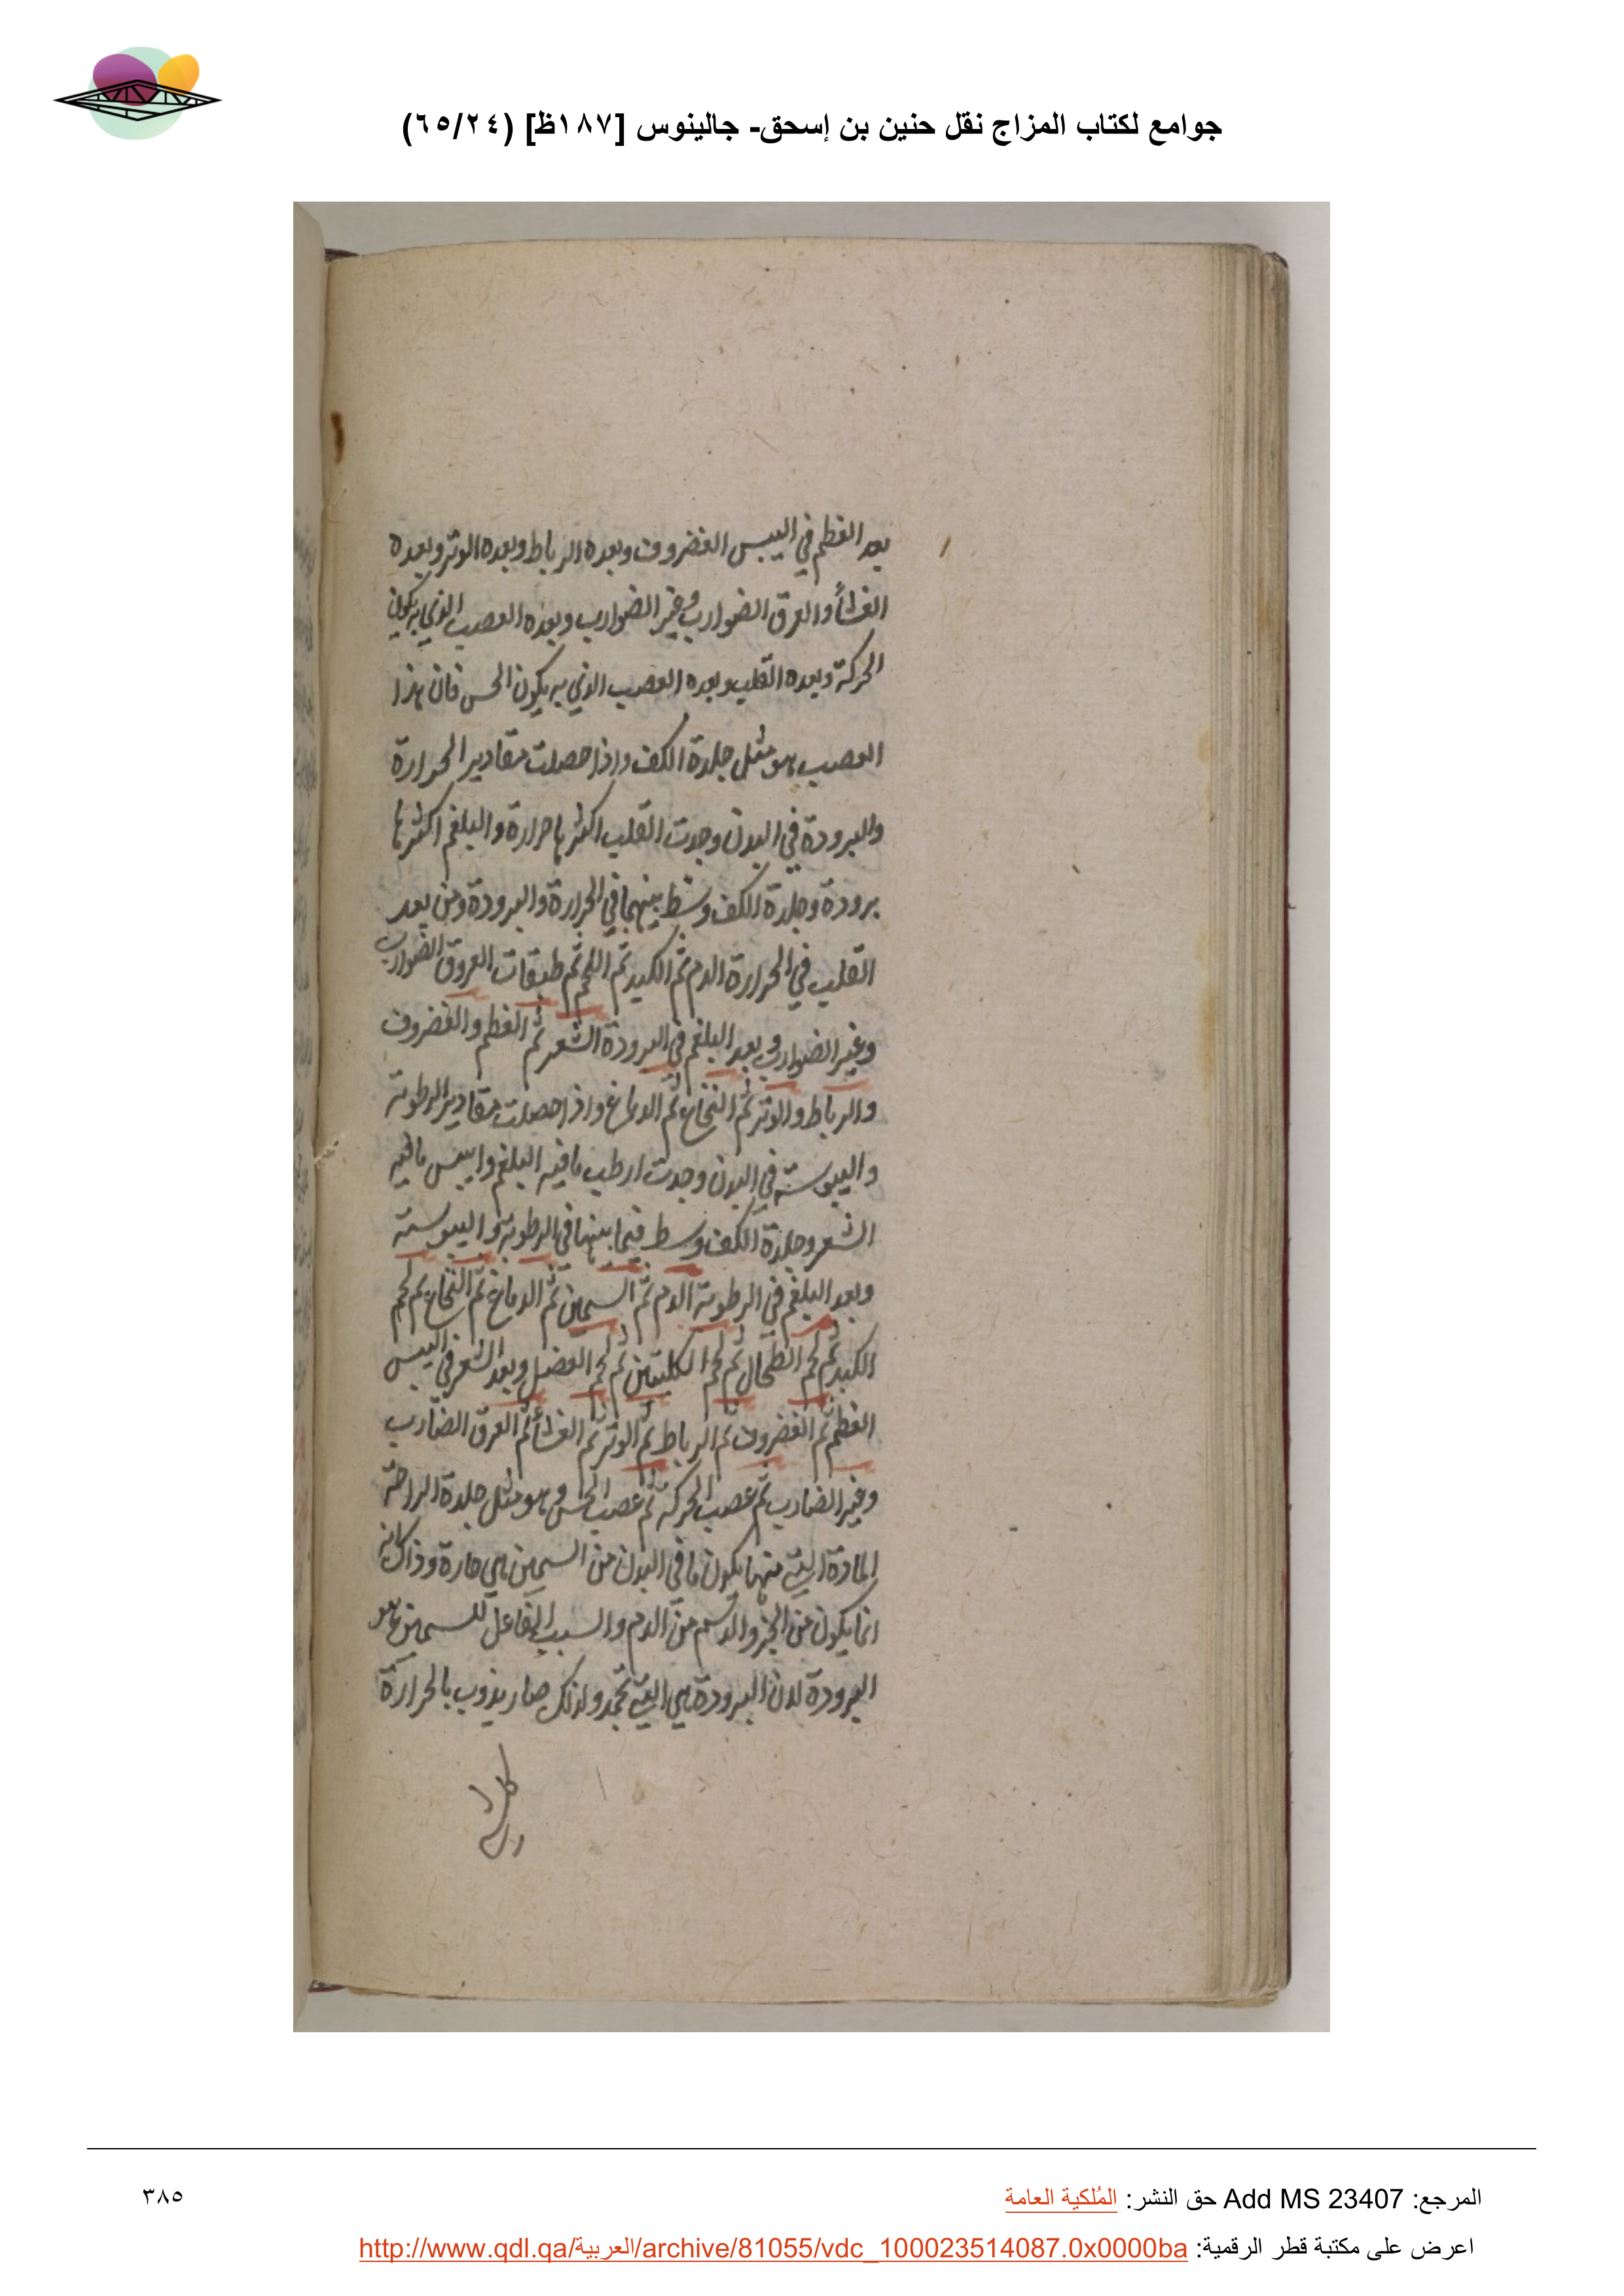 جوامع لكتاب المزاج نقل حنين بن إسحق- جالينوس [١٨٧ظ] (٦٥/٢٤)
بعد العظم في اليبس الغضروف وبعده الرباط وبعده الوتر وبعده
الغشأ والعرق الضوارب وغير الضوارب وبعده العصب الذي به يكون
الحركة وبعده القلب وبعده العصب الذي به يكون الحس فان هذا
العصب هو مثل جلدة الكف واذا حصلت مقادير الحرارة
والبرودة في البدن وجدت القلب اكثرها حرارة والبلغم اكثرها
برودة وجلدة الكف وسط بينهما في الحرارة والبرودة ومن بعد
القلب في الحرارة الدم ثم الكبد ثم اللحم ثم طبقات العروق الضوارب
وغير الضوارب وبعد البلغم في البرودة الشعر ثم العظم والغضروف
والرباط والوتر ثم النخاع ثم الدماغ واذا حصلت مقادير الرطوبة
واليبوسة في البدن وجدت ارطب ما فيه البلغم وايبس ما فيه
الشعر وجلدة الكف وسط فيما بينهما في الرطوبة واليبوسة
وبعد البلغم في الرطوبة الدم ثم السمين ثم الدماغ ثم النخاع ثم لحم
الكبد ثم لحم الطحال ثم لحم الكليتين ثم لحم العضل وبعد الشعر في اليبس
العظم ثم الغضروف ثم الرباط ثم الوتر ثم الغشأ ثم العرق الضارب
وغير الضارب ثم عصب الحركة ثم عصب الحس وهو مثل جلدة الراحة
المادة التي منها يكون ما في البدن من السمين هي حارة وذاك انه
انما يكون من الجزو الدسم من الدم والسبب الفاعل للسمين هو
البرودة لان البرودة هي التي تجمد ولذلك صار يذوب بالحرارة
المرجع: Add MS 23407 حق النشر: المُلكية العامة
٣٨٥
اعرض على مكتبة قطر الرقمية: http://www.qdl.qa/العربية/archive/81055/vdc_100023514087.0x0000ba